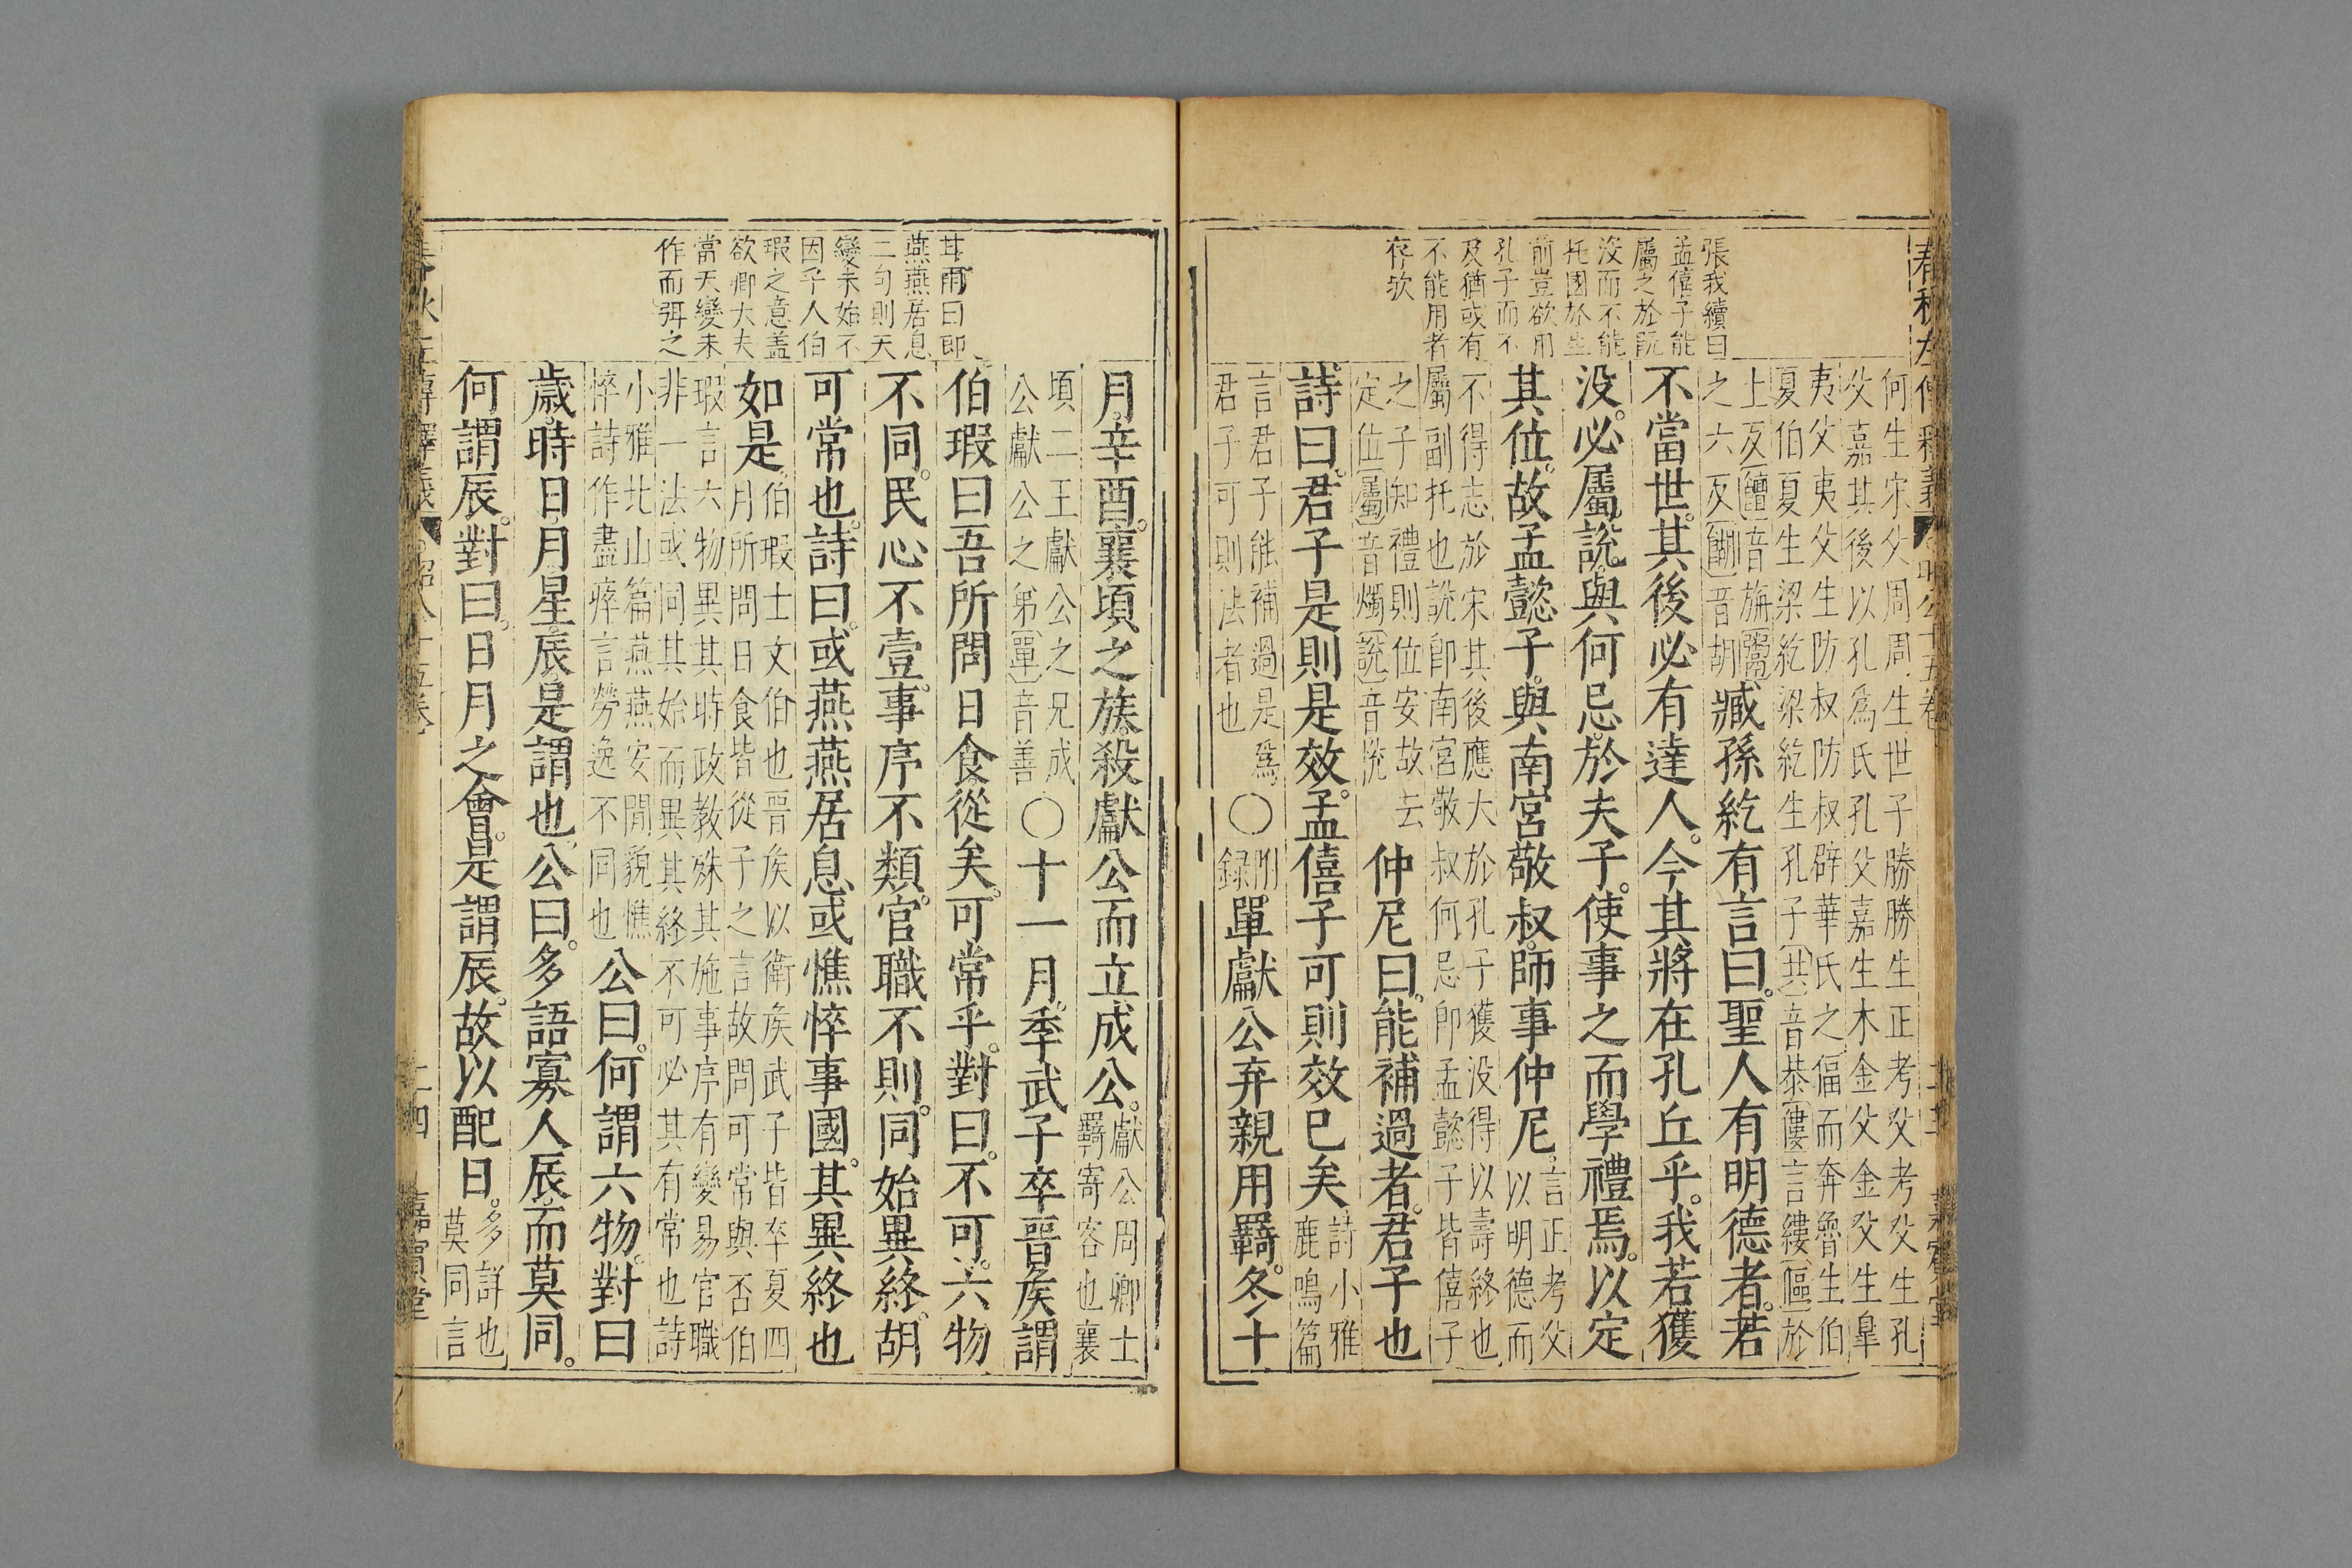 張我續曰
孟僖子能
屬之於既
没而不能
托國於生
前豈欲用
孔子而不
及猶或有
不能用者
存欤
何生宋父周周生世子勝勝生正考父考父生孔
父嘉其後以孔爲氏孔父嘉生木金父金父生睾
夷父夷父生防叔防叔辟華氏之偪而奔魯生伯
夏伯夏生梁紇梁紇生孔子共音恭僂言縷傴於
上反饘音旃鬻
之六反餬音胡
臧孫紇有言曰聖人有明德者若
不當世其後必有達人今其將在孔丘乎我若獲
没必屬說與何忌於夫子使事之而學禮焉以定
其位故孟懿子與南宮敬叔師事仲尼
言正考父
以明德而
不得志於宋其後應大於孔子獲没得以壽終也
屬副托也說即南宮敬叔何忌即孟懿子皆僖子
之子知禮則位安故去
定位屬音燭說音悦
仲尼曰能補過者君子也
詩曰君子是則是效孟僖子可則效已矣
詩小雅
鹿鳴篇
言君子能補過是爲
君子可則法者也
○
附
録
單獻公弃親用羇冬十
其爾曰即
燕燕居息
二句則天
變未始不
因乎人伯
瑕之意盖
欲卿大夫
當天變未
作而弭之
月辛酉襄頃之族殺獻公而立成公
獻公周卿士
羇寄客也襄
頃二王獻公之兄成
公獻公之弟單音善
○十一月季武子卒晉侯謂
伯瑕曰吾所問日食從矣可常乎對曰不可六物
不同民心不壹事序不類官職不則同始異終胡
可常也詩曰或燕燕居息或憔悴事國其異終也
如是
伯瑕士文伯也晉侯以衛侯武子皆卒夏四
月所問日食皆從子之言故問可常與否伯
瑕言六物異其時政教殊其施事序有變易官職
非一法或同其始而異其終不可必其有常也詩
小雅北山篇燕燕安閒貌憔
悴詩作盡瘁言勞逸不同也
公曰何謂六物對曰
歲時日月星辰是謂也公曰多語寡人辰而莫同
何謂辰對曰日月之會是謂辰故以配日
多詳也
莫同言